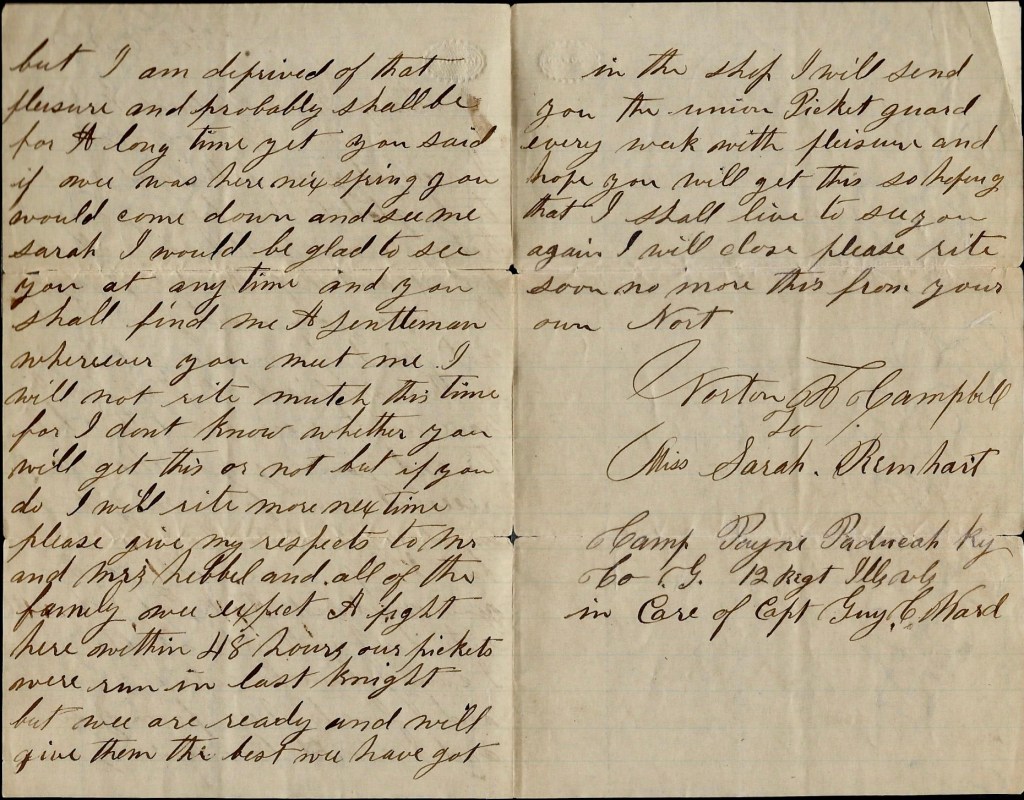 but I am diprived of that
pleisure and probably shall be
for A long time yet you said
if wee was here nex spring you
would come down and see me
sarah I would be glad to see
you at any time and you
shall find me A jentleman
whereever you meet me. I
will not rite mutch this time
for I dont know whether you
will get this or not but if you
do I will rite more nex time
please give my respects to Mr
and Mrs hebbel and all of the
family wee expect A fight
here within 48 hours, our pickets
were run in last Knight
but wee are ready and will
give them the best wee have got
in the shop I will send
you the union Picket guard
every week with pleisure and
hope you will get this so hoping
that I shall live to see you
again I will close please rite
soon no more this from your
own Nort
Norton Campbell
To
Miss Sarah. Reinhart
Camp Payne Paducah Ky
Co. G. 12 Regt Ills vls
in Care of Capt Guy C. Ward